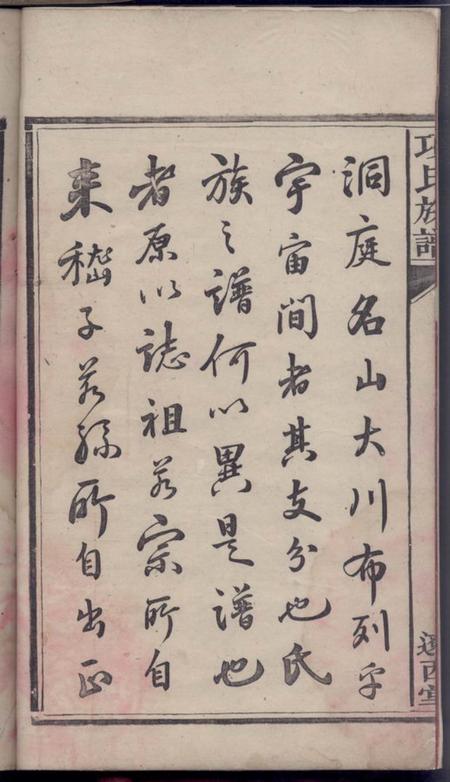 項氏族譜
洞庭名山大川布列乎
宇宙間者其支分也氏
族之譜何以異是譜也
者原以誌祖若宗所自
来稽子若孫所自出正
遼西堂